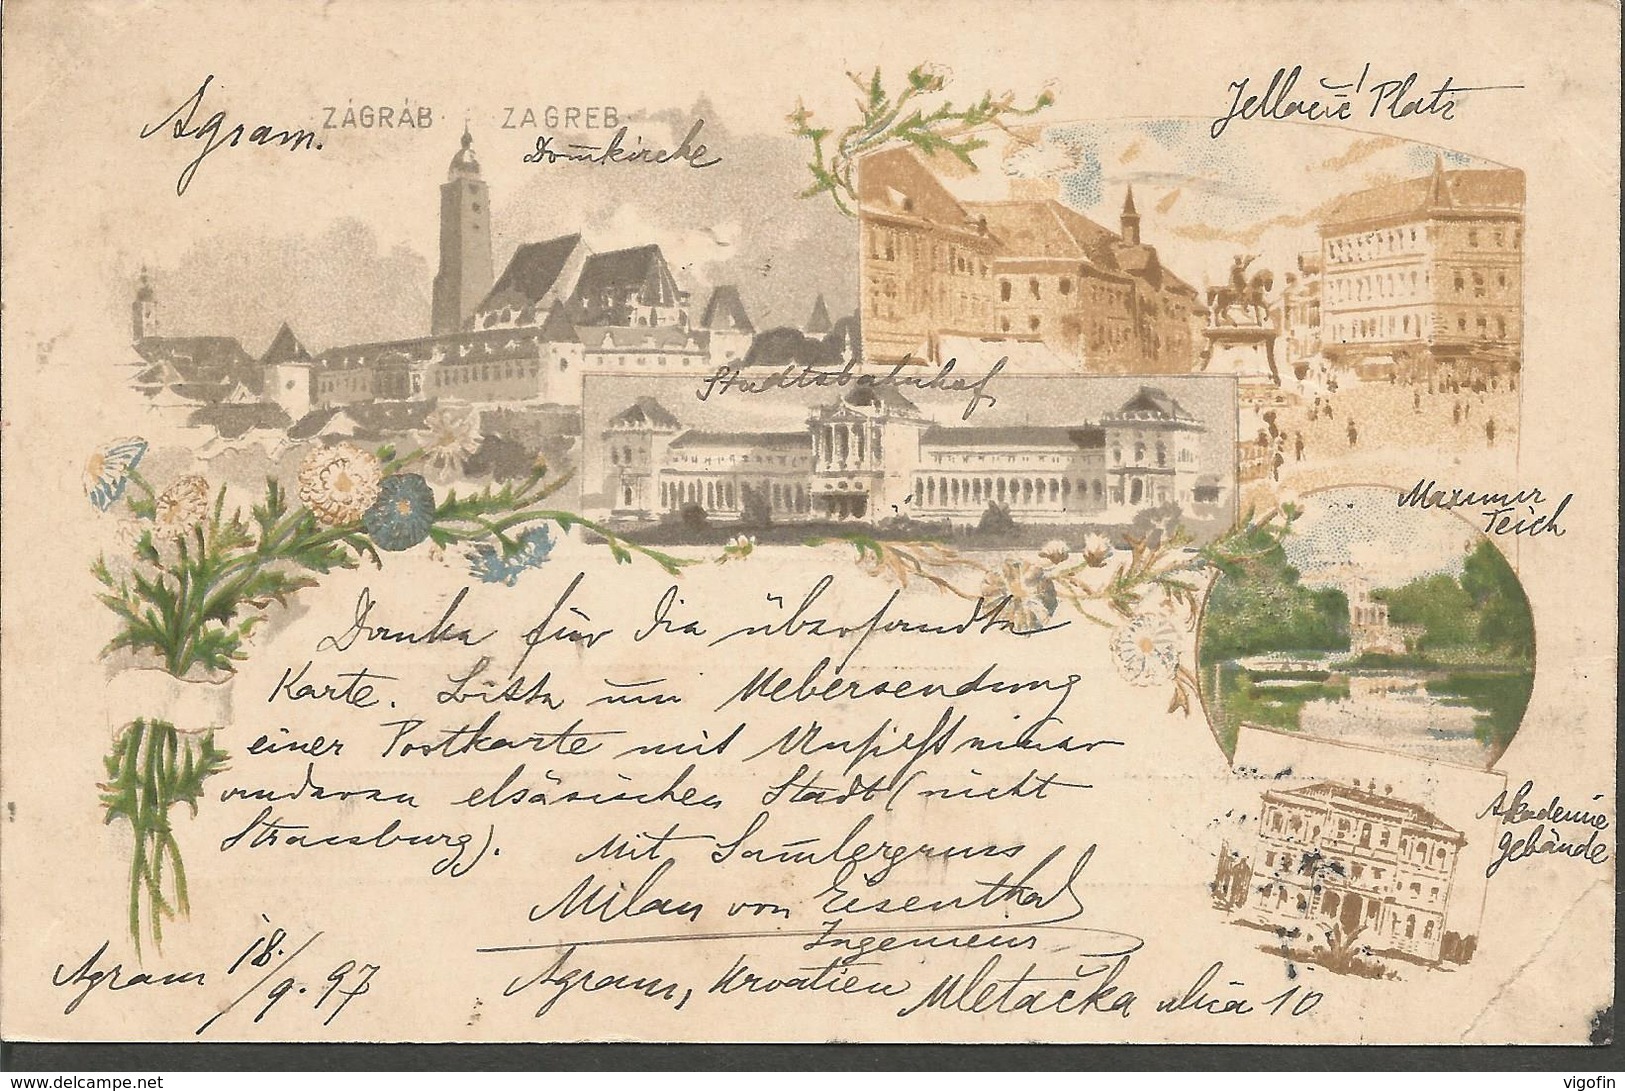 Agram.
ZÁGRÁB ZAGREB
Domkirche
Jellačić Platz
Stadtsbahnhof
Maximir
Teich
Akademie
gebäude
Danke für die übersandte
Karte. Bitte um Uebersendung
einer Postkarte mit Ansicht einer
anderen elsäsischen Stadt (nicht
Strassburg).
Mit Samlergruss
Milan von Eisenthal
Ingenieur
Agram, Kroatien Mletačka ulica 10
Agram 18./9. 97
www.delcampe.net
vigofin